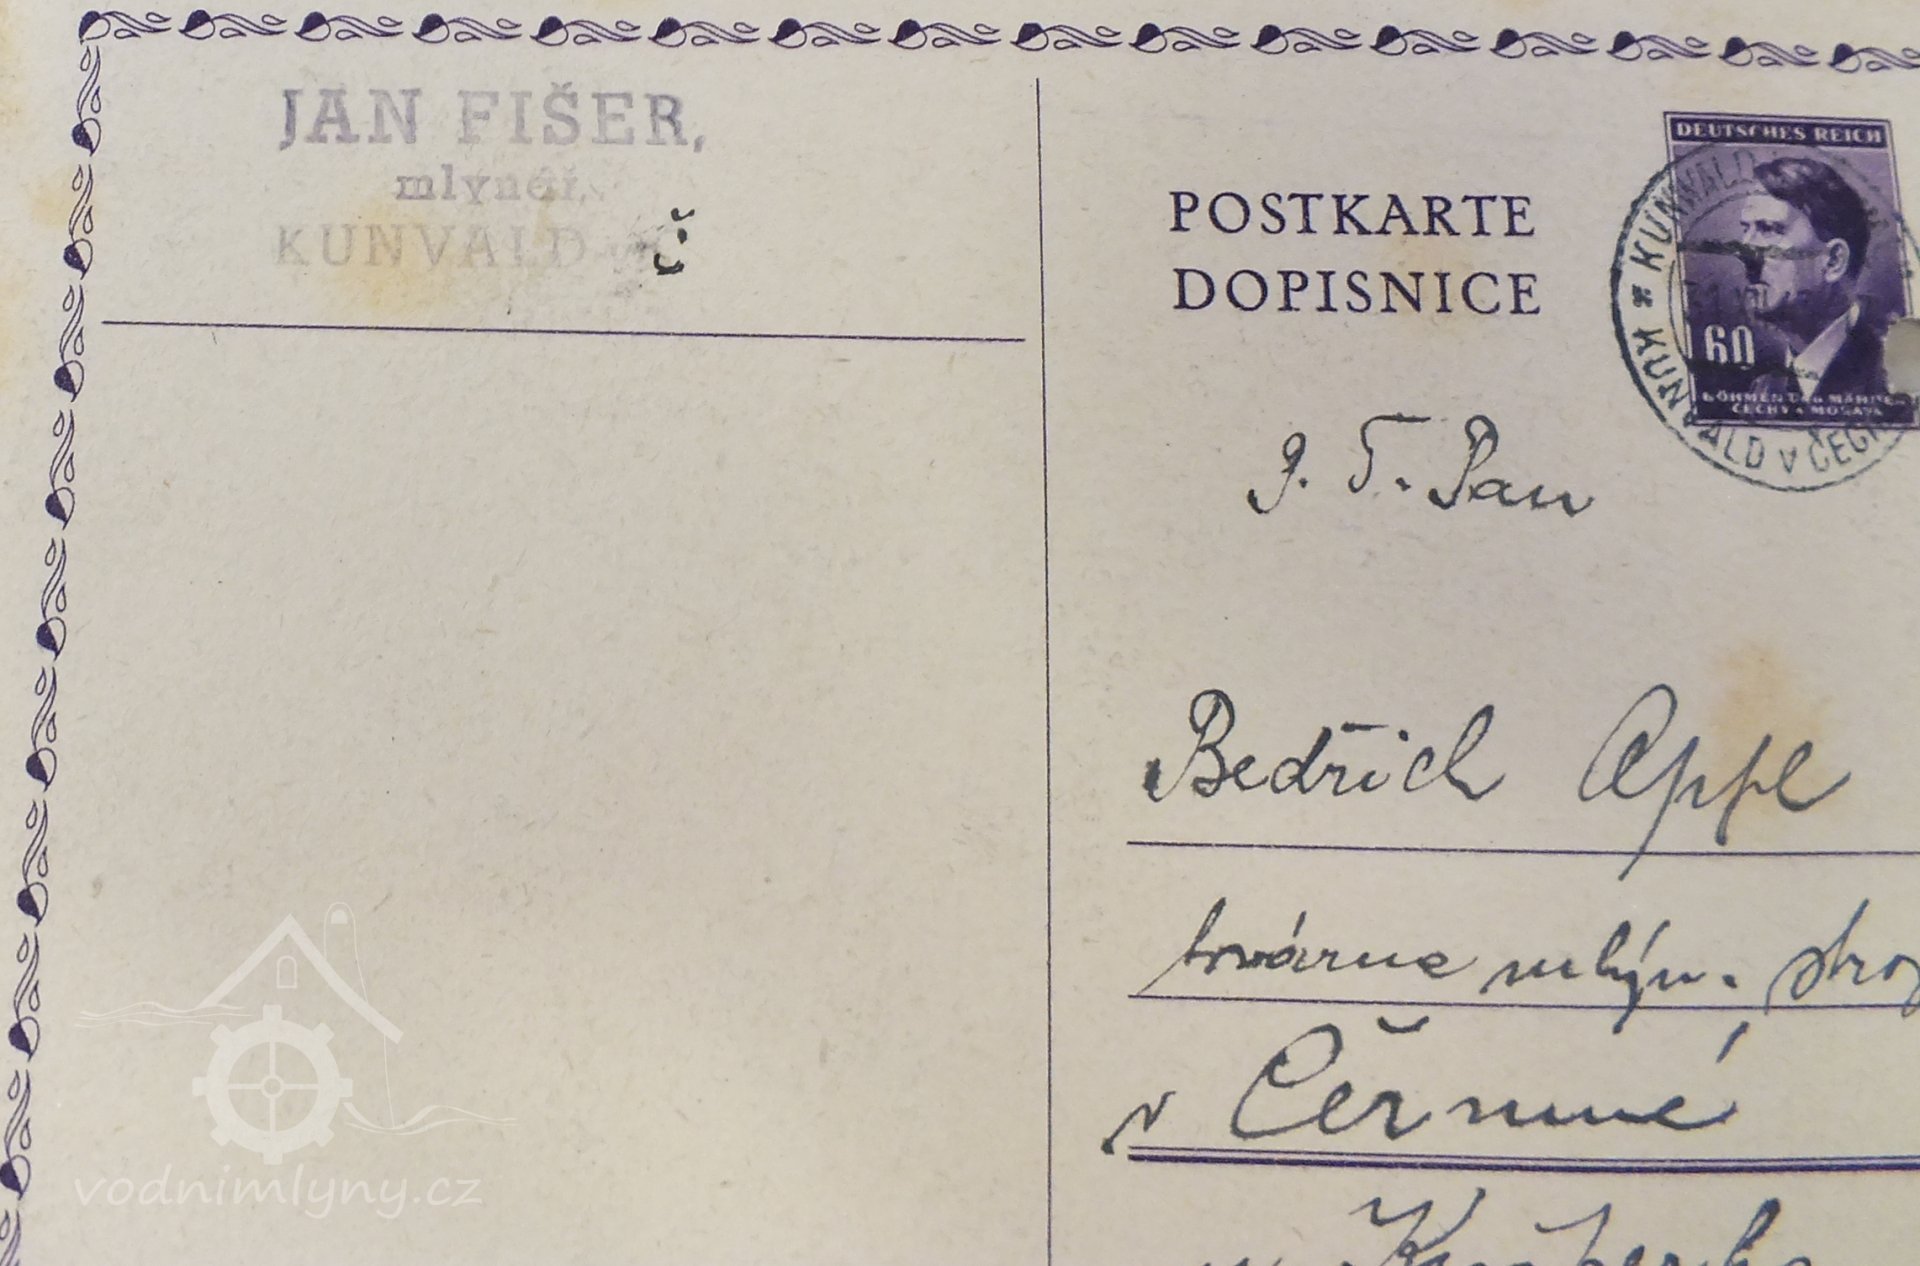 JAN FIŠER,
mlynář,
KUNVALD
POSTKARTE
DOPISNICE
DEUTSCHES REICH
60
BÖHMEN UND MÄHREN
ČECHY A MORAVA
KUNVALD
* KUNVALD V ČECH
P. T. Pan
Bedřich Appl
továrna mlýn. stroj
v Čermné
vodnimlyny.cz